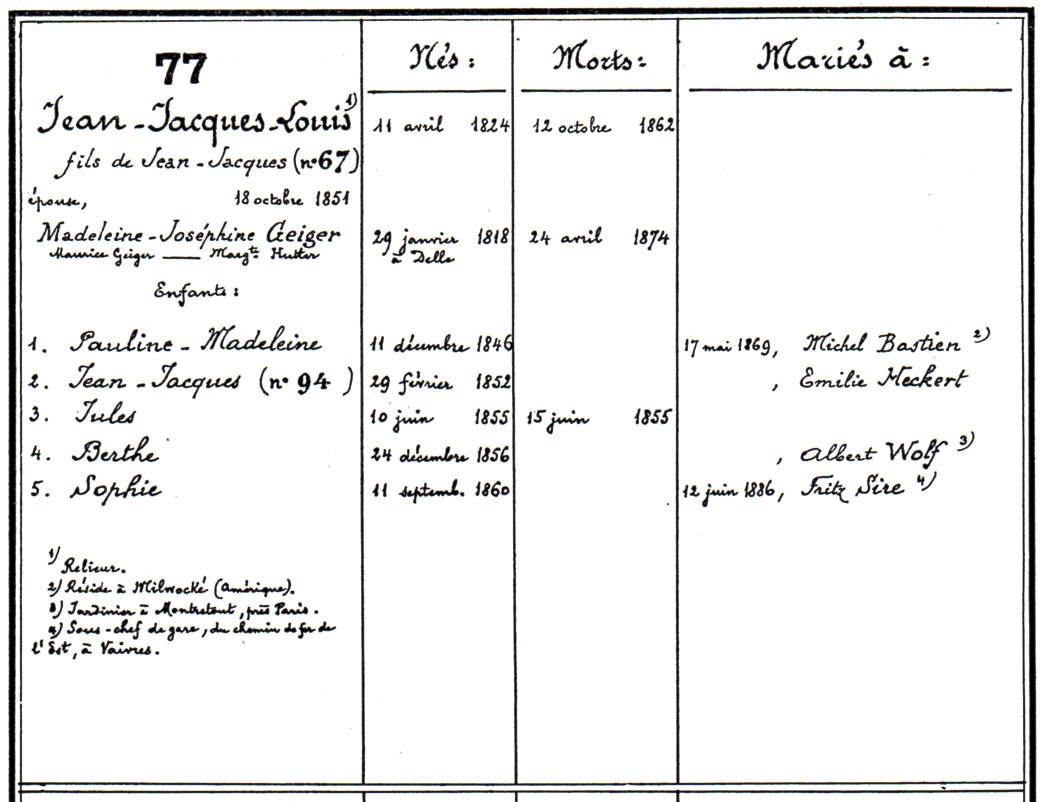 77 Nés : Morts : Mariés à :
Jean-Jacques-Louis 1) 11 avril 1824 12 octobre 1862
fils de Jean-Jacques (nº 67)
épouse, 18 octobre 1851
Madeleine-Joséphine Geiger 29 janvier 1818 24 avril 1874
Maurice Geiger — Margte Hutter à Delle
Enfants :
1. Pauline-Madeleine 11 décembre 1846 17 mai 1869, Michel Bastien 2)
2. Jean-Jacques (nº 94 ) 29 février 1852 , Emilie Heckert
3. Jules 10 juin 1855 15 juin 1855
4. Berthe 24 décembre 1856 , Albert Wolf 3)
5. Sophie 11 septemb. 1860 12 juin 1886, Fritz Sire 4)
1) Relieur.
2) Réside à Milwocké (Amérique).
3) Jardinier à Montretout, près Paris.
4) Sous-chef de gare, du chemin de fer de
l'Est, à Vaivres.